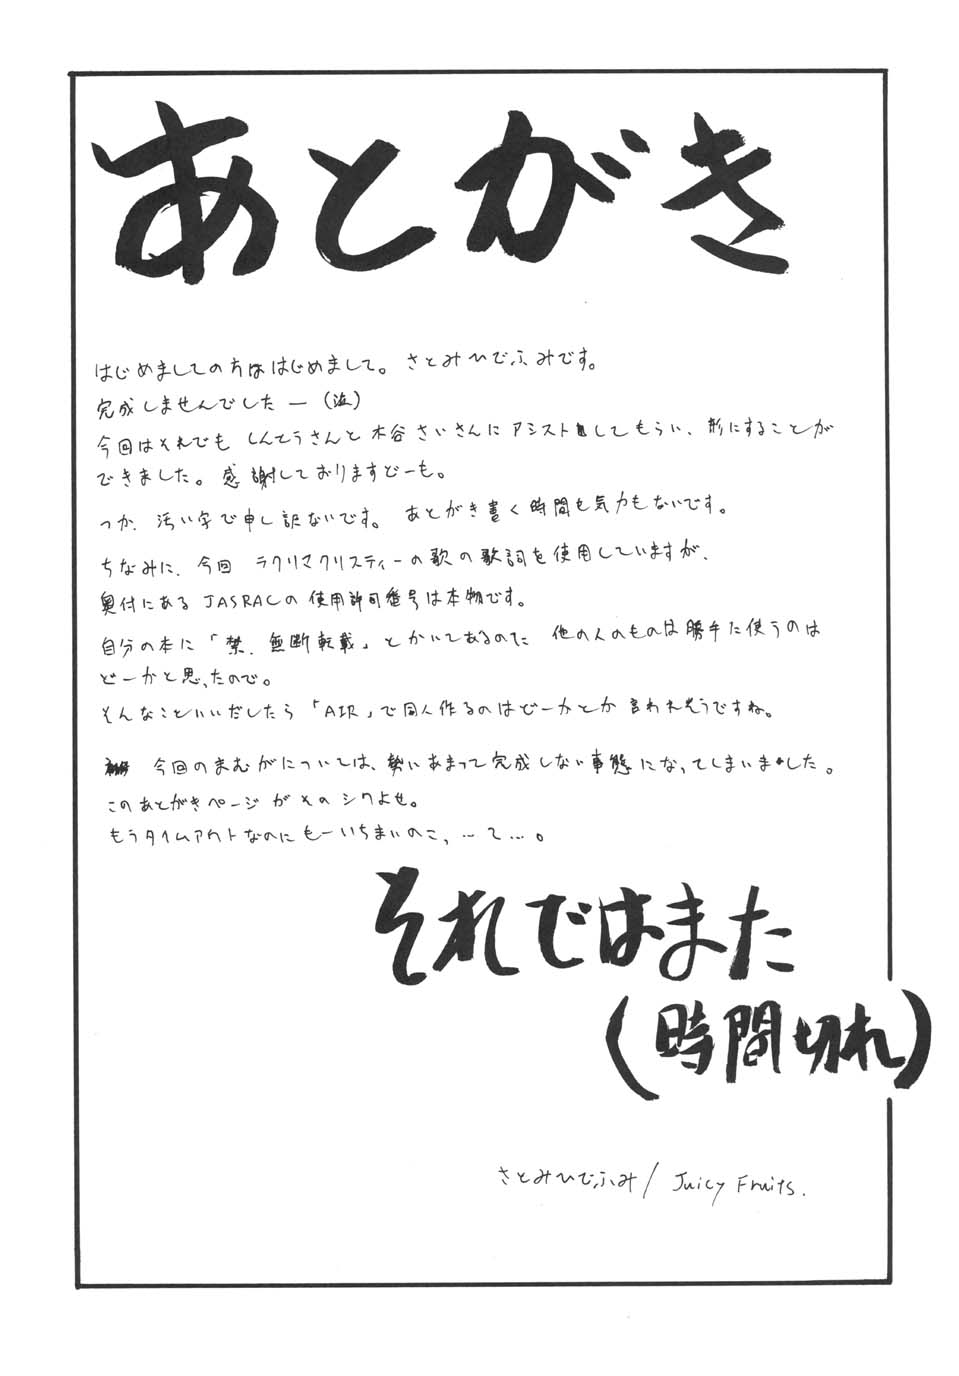 あとがき
はじめましての方ははじめまして。さとみひでふみです。
完成しませんでしたー（泣）
今回はそれでも しんてうさんと 木谷さいさんに アシストしてもらい、形にすることが
できました。感謝しておりますどーも。
つか、汚い字で申し訳ないです。 あとがき書く時間も気力もないです。
ちなみに、今回 ラクリマクリスティーの歌の歌詞を使用していますが、
奥付にある JASRACの 使用許可番号は本物です。
自分の本に「禁・無断転載」とかいてあるのに 他の人のものは勝手に使うのは
どーかと思ったので。
そんなこといいだしたら「AIR」で同人作るのはどーかとか 言われそうですね。
今回のまむがについては、勢いあまって完成しない事態になってしまいました。
このあとがきページがそのシワよせ。
もうタイムアウトなのにもーいちまいのこ、…て…。
それではまた
（時間切れ）
さとみひでふみ/ Juicy Fruits.